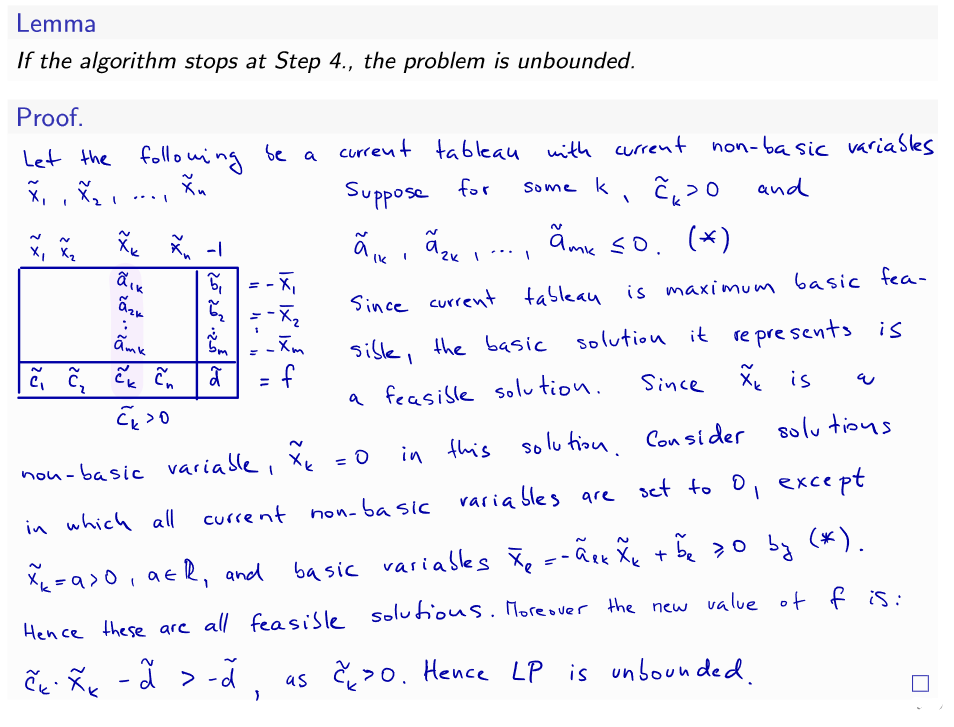 Lemma
If the algorithm stops at Step 4., the problem is unbounded.
Proof.
Let the following be a current tableau with current non-basic variables
x̃₁, x̃₂, ..., x̃ₙ Suppose for some k, c̃ₖ>0 and
x̃₁ x̃₂ x̃ₖ x̃ₙ -1 ã₁ₖ, ã₂ₖ, ..., ãₘₖ ≤ 0. (*)
ã₁ₖ b̃₁ = -x̄₁
ã₂ₖ b̃₂ = -x̄₂
⋮ ⋮ ⋮
ãₘₖ b̃ₘ = -x̄ₘ
c̃₁ c̃₂ c̃ₖ c̃ₙ d̃ = f
c̃ₖ>0
Since current tableau is maximum basic fea-
sible, the basic solution it represents is
a feasible solution. Since x̃ₖ is a
non-basic variable, x̃ₖ = 0 in this solution. Consider solutions
in which all current non-basic variables are set to 0, except
x̃ₖ=a>0, a∈ℝ, and basic variables x̄ₑ = -ãₑₖ x̃ₖ + b̃ₑ ⩾ 0 by (*).
Hence these are all feasible solutions. Moreover the new value of f is:
c̃ₖ·x̃ₖ - d̃ > -d̃, as c̃ₖ>0. Hence LP is unbounded.